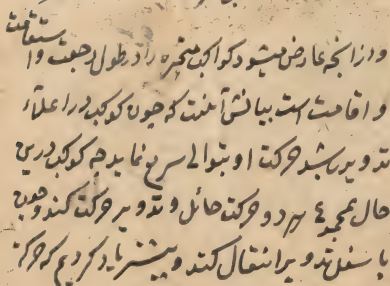 و از آنچه عارض میشود کواکب متحیره را در طول رجعت و استقامت
و اقامت است بیانش آنست که چون کوکب در اعلاء
تدویر باشد حرکت او بتوالی سریع نماید چه کوکب درین
حال بمجموع هر دو حرکت حائل و تدویر حرکت کند و چون
باسفل تدویر انتقال کند و پیشتر یاد کردیم که حرکة